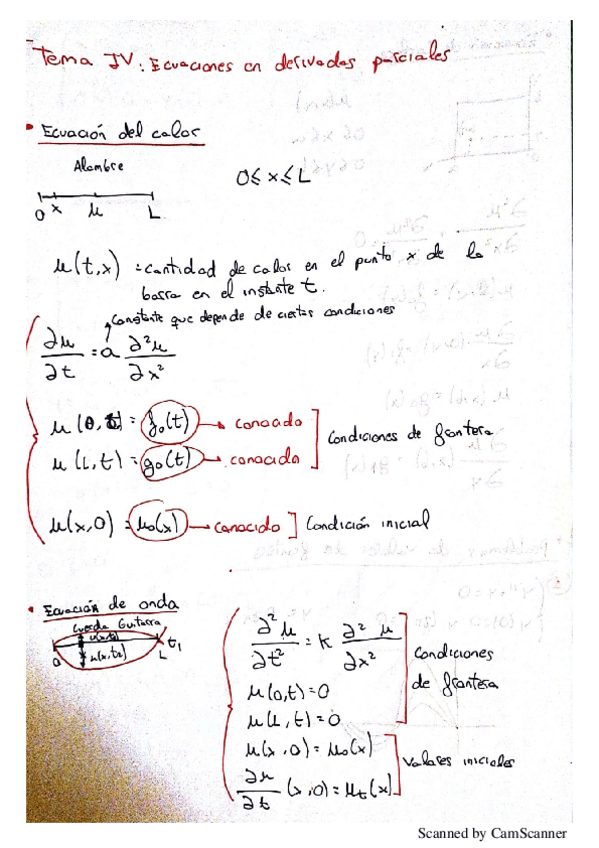 Tema IV: Ecuaciones en derivadas parciales
• Ecuación del calor
Alambre
0 ≤ x ≤ L
0 x μ L
μ(t,x) = cantidad de calor en el punto x de la
barra en el instante t.
constante que depende de ciertas condiciones
∂μ/∂t = a ∂²μ/∂x²
μ(0,t) = f₀(t) → conocido
μ(L,t) = g₀(t) → conocido
] Condiciones de frontera
μ(x,0) = μ₀(x) → conocido ] Condición inicial
• Ecuación de onda
Cuerda Guitarra
μ(x,t₁)
μ(x,t₂)
0 L t₁
∂²μ/∂t² = K ∂²μ/∂x²
μ(0,t)=0
μ(L,t)=0
Condiciones
de frontera
μ(x,0) = μ₀(x)
∂μ/∂t (x,0) = μt(x)
Valores iniciales
Scanned by CamScanner